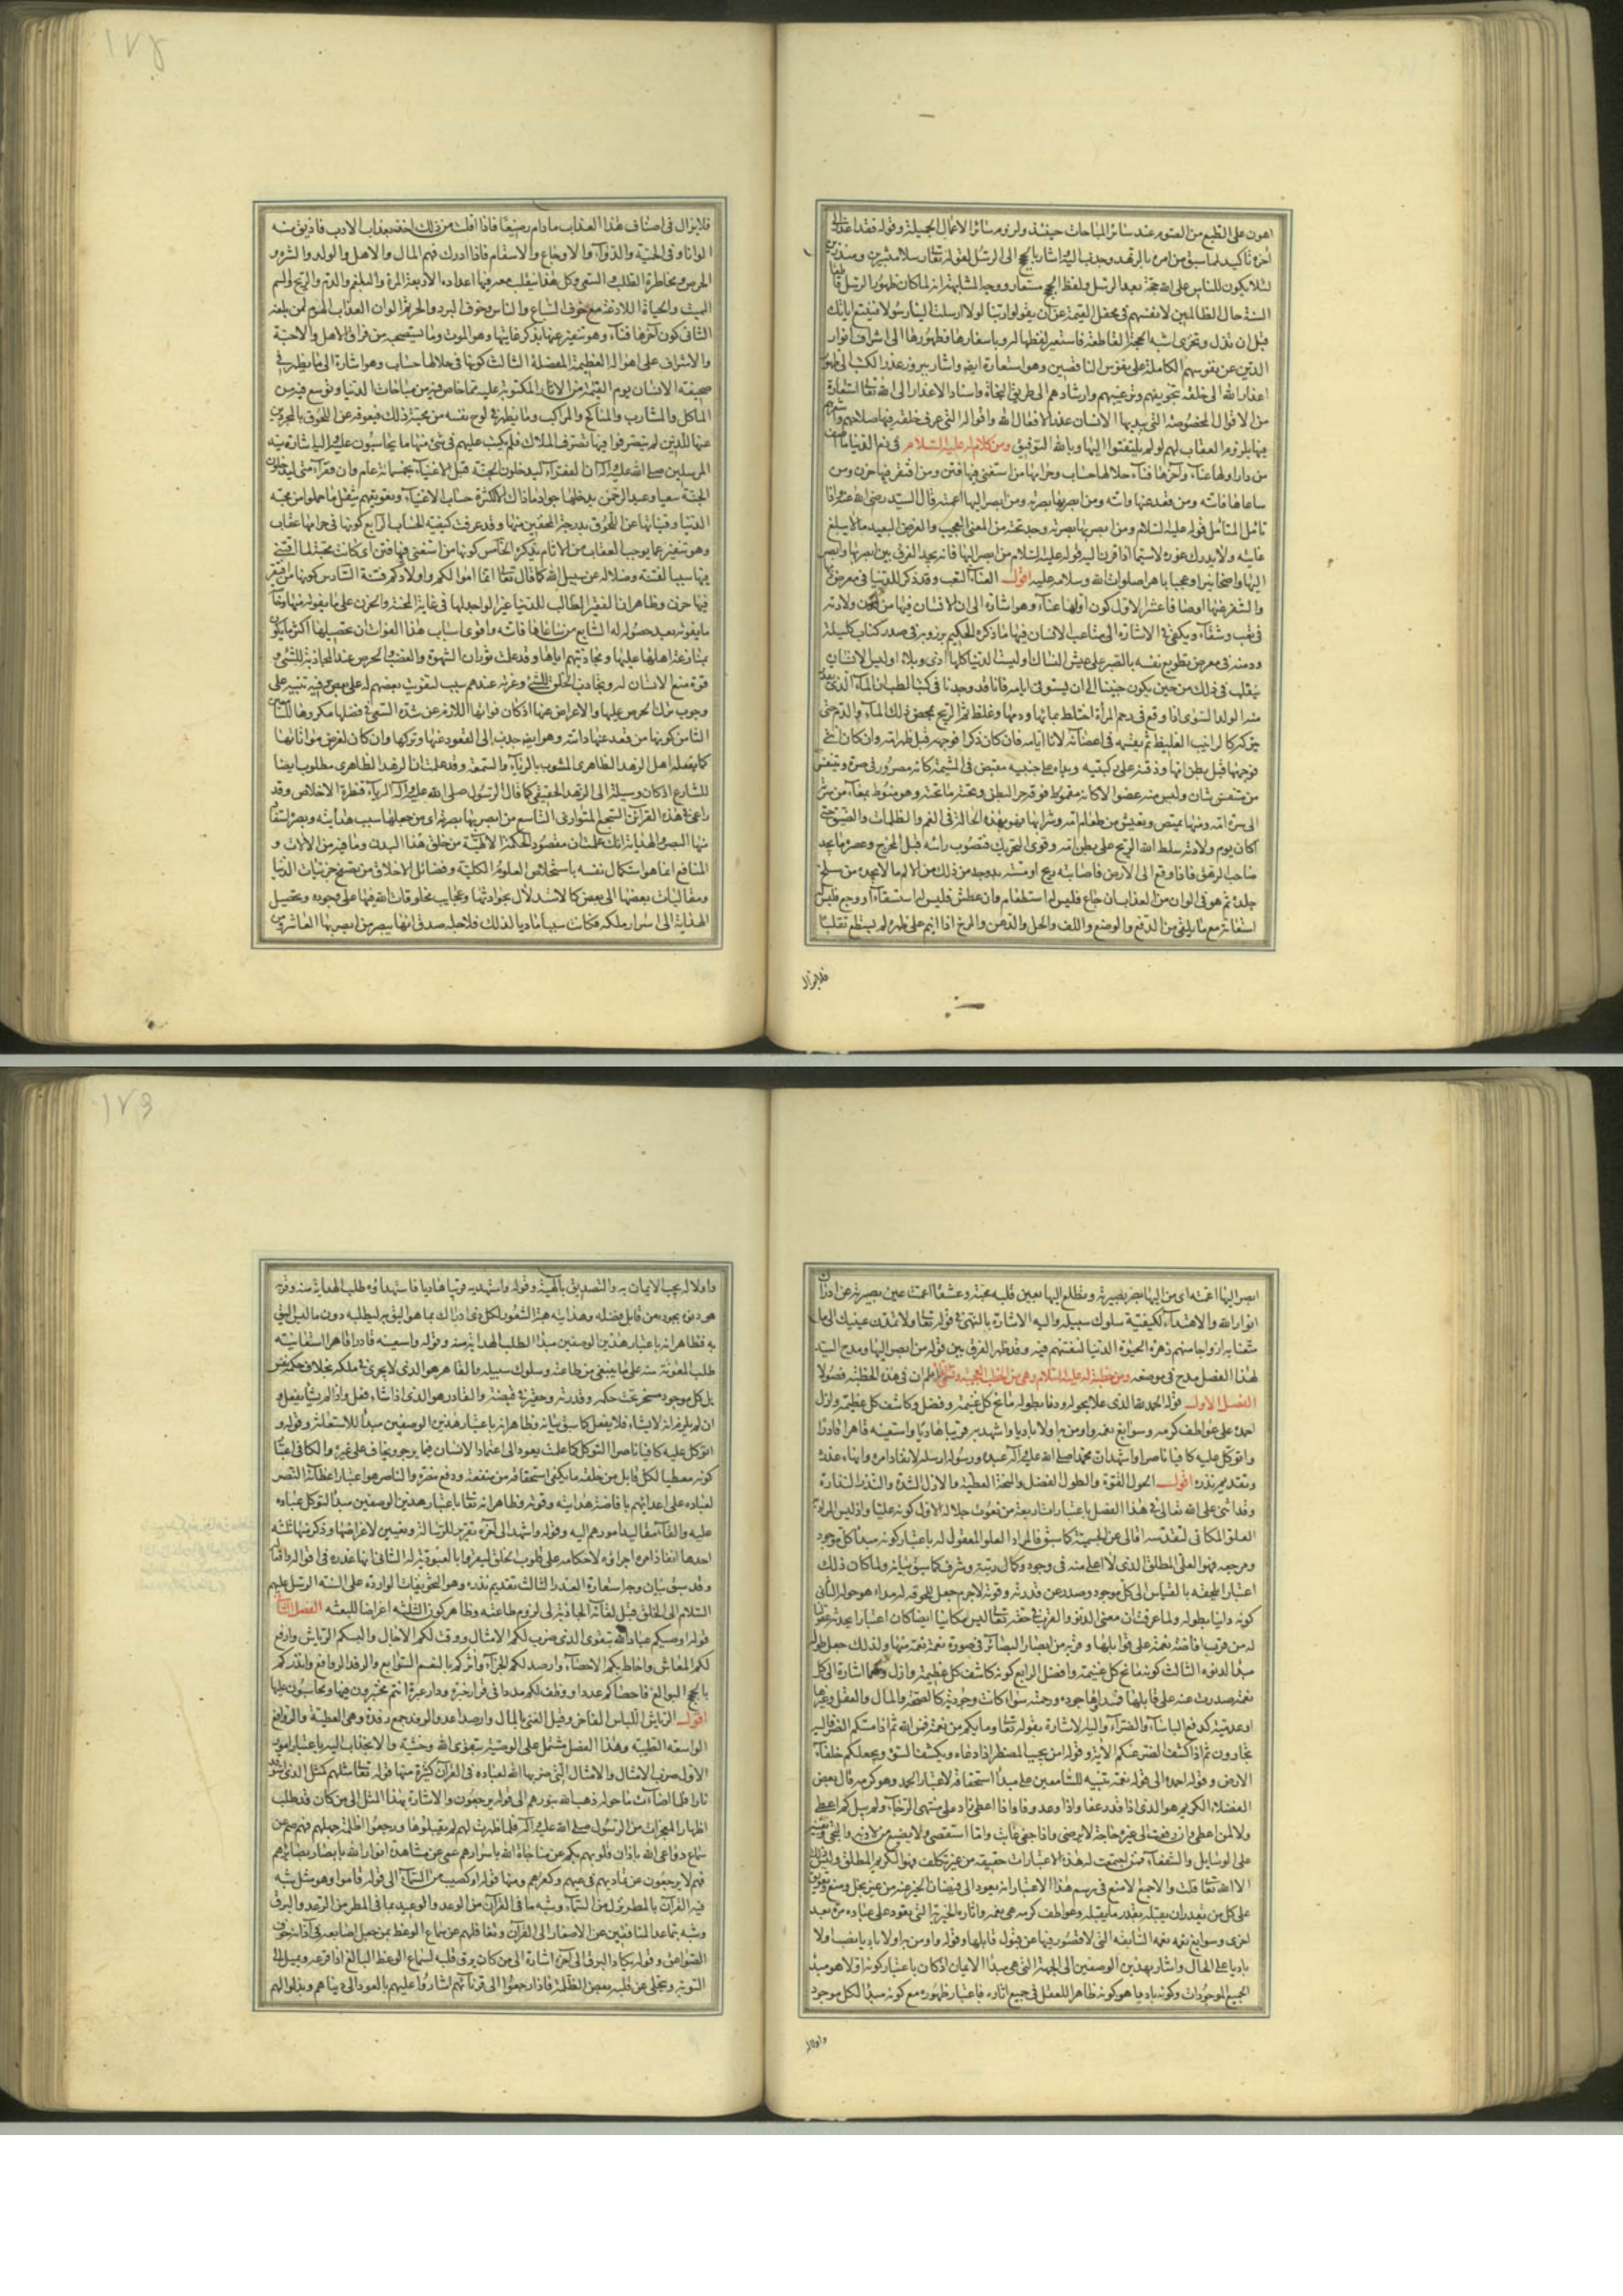 اهون على الطبع من الصوم عند سائر المباحات حينئذ ولزوم سائر الاعمال الجميلة وقوله فقد اعذر الى
آخره تأكيد لما سبق من امره بالزهد وجذب اليه واشار بالحجج الى الرسل لقوله تعالى رسلا مبشرين ومنذرين
لئلا يكون للناس على الله حجة بعد الرسل ولفظ الحجج مستعار ووجه المشابهة انه لما كان ظهور الرسل قاطعا
السنة حال الظالمين لانفسهم في محفل القيمة عن ان يقولوا ربنا لولا ارسلت الينا رسولا فنتبع اياتك
قبل ان نذل ونخزى اشبه الحجة القاطعة فاستعير لفظها له وباسفارها وظهورها الى اشراق انوار
الدين عن نفوسهم الكاملة على نفوس الناقصين وهو استعارة ايضا واشار ببروز عذر الكتب الى ظهور
اعذار الله الى خلقه بتخويفهم وترغيبهم وارشادهم الى طريق النجاة واسناد الاعذار الى الله تعالى استعارة
من الاقوال المخصوصة التي يبديها الانسان عذرا لافعال الله واقواله التي عرف خلقه فيها صلاحهم واشعرهم
فيها بلزوم العقاب لهم لو لم يلتفتوا اليها وبالله التوفيق ومن كلام له عليه السلام في ذم الدنيا ما اصف
من دار اولها عناء وآخرها فناء حلالها حساب وحرامها عقاب من استغنى فيها فتن ومن افتقر فيها حزن ومن
ساعاها فاتته ومن قعد عنها واتته ومن ابصر بها بصرته ومن ابصر اليها اعمته قال السيد رضي الله عنه واذا
تأمل المتأمل قوله عليه السلام ومن ابصر بها بصرته وجد تحته من المعنى العجيب والغرض البعيد ما لا يبلغ
غايته ولا يدرك غوره لاسيما اذا قرن اليه قوله عليه السلام من ابصر اليها فانه يجد الفرق بين ابصر بها وابصر
اليها واضحا نيرا وعجيبا باهرا صلوات الله وسلامه عليه اقول العناء التعب وقد ذكر للدنيا في معرض
والتنفير عنها اوصافا عشرا الاول كون اولها عناء وهو اشارة الى ان الانسان فيها من لدن ولادته
في تعب وشقاء ويكفي في الاشارة الى متاعب الانسان فيها ما ذكره الحكيم برزويه في صدر كتاب كليلة
ودمنة في معرض تطويع نفسه بالصبر على عيش النساك او ليست الدنيا كلها اذى وبلاء او ليس الانسان
يتقلب في ذلك من حين يكون جنينا الى ان يستوفي ايامه فانا قد وجدنا في كتب الطب ان الماء الذي يقدر
منه الولد السوى اذا وقع في رحم المرأة اختلط بمائها ودمها وغلظ ثم الريح تمخض ذلك الماء والدم حتى
تتركه كالرائب الغليظ ثم تقسمه في اعضائه لآناء ايامه فان كان ذكرا فوجهه قبل ظهر امه وان كان انثى
فوجهها قبل بطن امها وذقنه على ركبتيه ويداه على جنبيه منقبض في المشيمة كانه مصرور في صرة ويتنفس
من متنفس شاق وليس منه عضو الا كانه مقموط فوقه حر البطن وتحته ما تحته وهو منوط بمعاء من سرته
الى سرة امه ومنها يمتص ويعيش من طعام امه وشرابها فهو بهذه الحالة في الغم والظلمات والضيق حتى
اذا كان يوم ولادته سلط الله الريح على بطن امه وقوى التحريك فتصوب رأسه قبل المخرج وعصره ما يجد
صاحب الرهق فاذا وقع الى الارض فاصابته ريح او مسته يد وجد من ذلك من الالم ما لا يجده من سلخ
جلده ثم هو في الوان من العذاب ان جاع فليس له استطعام وان عطش فليس له استسقاء او وجع فليس له
استغاثة مع ما يلقى من الدفع والوضع واللف والحل والدهن والمرخ اذا انيم على ظهره لم يستطع تقلبا
فلايزال
فلا يزال في اصناف هذا العذاب ما دام رضيعا فاذا افلت من ذلك اخذ بعذاب الادب فاذيق منه
الوانا وفي الحمية والدواء والاوجاع والاسقام فاذا ادرك فهم المال والاهل والولد والشره و
الحرص ومخاطرة الطلب والسعي وكل هذا يتقلب معه فيها اعداؤه الاربعة المرة والبلغم والدم والريح والسم
المميت والحيات اللادغة مع خوف السباع والناس وخوف البرد والحر ثم الوان العذاب الهرم لمن بلغه
الثاني كون آخرها فناء وهو تنفير عنها بذكر غايتها وهو الموت وما يستصحبه من فراق الاهل والاحبة
والاشراف على اهواله العظيمة المعضلة الثالث كونها في حلالها حساب وهو اشارة الى ما يظهر في
صحيفة الانسان يوم القيمة من الآثار المكتوبة عليه مما خاض فيه من مباحات الدنيا وتوسع فيه من
المآكل والمشارب والمناكح والمراكب وما يظهر في لوح نفسه من محبة ذلك فيعوقه عن اللحوق بالمجردين
عنها الذين لم يتصرفوا فيها تصرف الملاك فلم يكتب عليهم في شئ منها ما يحاسبون عليه واليه اشارة سيد
المرسلين صلى الله عليه وآله ان الفقراء ليدخلون الجنة قبل الاغنياء بخمسمائة عام وان فقراء امتي ليدخلون
الجنة سعيا وعبد الرحمن يدخلها حبوا وما ذاك الا لكثرة حساب الاغنياء وتعويقهم بثقل ما حملوا من محبة
الدنيا وقيناتها عن اللحوق بدرجة المخفين منها وقد عرفت كيفية الحساب الرابع كونها في حرامها عقاب
وهو تنفير عما يوجب العقاب من الآثام بذكره الخامس كونها من استغنى فيها فتن اي كانت محبته لما اقتنى
فيها سببا لفتنته وضلاله عن سبيل الله كما قال تعالى انما اموالكم واولادكم فتنة السادس كونها من افتقر
فيها حزن وظاهر ان الفقير الطالب للدنيا غير الواجد لها في غاية المحنة والحزن على ما يفوته منها
ما يفوته بعد حصوله له السابع من ساعاها فاتته واقوى اسباب هذا الفوات ان تحصيلها اكثر ما يكون
بمنازعة اهلها عليها ومجاذبتهم اياها وقد علمت ثوران الشهوة والغضب والحرص عند المجاذبة للشئ و
قوة منع الانسان له وتجاذب الخلق للشئ وعزته عندهم سبب لتفويت بعضهم له على بعض وفيه تنبيه على
وجوب ترك الحرص عليها والاعراض عنها اذ كان فواتها اللازم عن شدة السعي في فضلها مكروها للساعي
الثامن كونها من قعد عنها واتته وهو ايضا جذب الى القعود عنها وتركها وان كان لغرض مواتاتها
كما يفعله اهل الزهد الظاهري المشوب بالرياء والسمعة وقد علمت ان الزهد الظاهري مطلوب ايضا
للشارع اذ كان وسيلة الى الزهد الحقيقي كما قال الرسول صلى الله عليه وآله الرياء قنطرة الاخلاص وقد
راعى في هذه القرائن السجع المتوازي التاسع من ابصر بها بصرته اي من جعلها سبب هدايته وبصره استفاد
منها البصر والهداية انك علمت ان مقصود الحكمة الالهية من خلق هذا البدن وما فيه من الآلات و
المنافع انما هو استكمال نفسه باستخلاص العلوم الكلية وفضائل الاخلاق من تصفح جزئيات الدنيا
ومقايسات بعضها الى بعض كالاستدلال بحوادثها وعجايب مخلوقات الله فيها على وجوده وتحصيل
الهداية الى اسرار ملكه فكانت سببا ماديا لذلك فلاجله صدق انها تبصر من ابصر بها العاشر من
ابصر اليها اعمته اي من اليها بصر بصيرته وتطلع اليها بعين قلبه محبة وعشقا اعمت عين بصيرته عن ادراك
انوار الله والاهتداء لكيفية سلوك سبيله واليه الاشارة بالنهي في قوله تعالى ولا تمدن عينيك الى ما
متعنا به ازواجا منهم زهرة الحيوة الدنيا لنفتنهم فيه وقد ظهر الفرق بين قوله من ابصر اليها ومدح السيد
لهذا الفصل مدح في موضعه ومن خطبة له عليه السلام وهي من الخطب العجيبة وتسمى اعلم ان في هذه الخطبة فصولا
الفصل الاول قوله الحمد لله الذي علا بحوله ودنا بطوله مانح كل غنيمة وفضل وكاشف كل عظيمة وازل
احمده على عواطف كرمه وسوابغ نعمه واومن به اولا باديا واستهديه قريبا هاديا واستعينه قاهرا قادرا
واتوكل عليه كافيا ناصرا واشهد ان محمدا صلى الله عليه وآله عبده ورسوله ارسله لانفاذ امره وانهاء عذره
وتقديم نذره اقول الحول القوة والطول الفضل والمنحة العطية والازل الشدة والنذر النذارة
وقد اثنى على الله تعالى في هذا الفصل باعتبارات اربعة من نعوت جلاله الاول كونه عليا واذ ليس المراد
العلو المكاني لتقدسه تعالى عن الجسمية كما سبق فالمراد العلو المعقول له باعتبار كونه مبدأ كل موجود
ومرجعه فهو العلى المطلق الذي لا اعلى منه في وجود وكمال رتبة وشرف كما سبق بيانه ولما كان ذلك
اعتبارا يلحقه بالقياس الى كل موجود وصدر عن قدرته وقوته لا جرم جعل لحوقه له مبدءا هو حوله الثاني
كونه دانيا بطوله ولما عرفت ان معنى الدنو والقرب في حقه تعالى ليس مكانيا ايضا كان اعتبارا
له من قريب افاضة نعمه على قوابلها وقربه من ابصار البصائر في صورة نعمة نعمة منها ولذلك جعل طوله
مبدأ لدنوه الثالث كونه مانح كل غنيمة وافضل الرابع كونه كاشف كل عظيمة وازل وهما اشارة الى كل
نعمة صدرت عنه على قابلها فمبدأها جوده ورحمته سواء كانت وجودية كالصحة والمال والعقل وغيرها
او عدمية كدفع البأساء والضراء واليه الاشارة بقوله تعالى وما بكم من نعمة فمن الله ثم اذا مسكم الضر فاليه
تجأرون ثم اذا كشف الضر عنكم الآية وقوله امن يجيب المضطر اذا دعاه ويكشف السوء ويجعلكم خلفاء
الارض وقوله احمده الى قوله نعمه تنبيه للسامعين على مبدأ استحقاقه لاعتبار الحمد وهو كرمه قال بعض
الفضلاء الكريم هو الذي اذا قدر عفا واذا وعد وفا واذا اعطى زاد على منتهى الرجاء ولم يبال كم اعطى
ولا لمن اعطى وان رفعت الى غيره حاجة لا يرضى واذا جفى عاتب وما استقصى ولا يضيع من لاذ به والتجى ويغنيه
على الوسايل والشفعاء فمن اجتمعت له هذه الاعتبارات حقيقة من غير تكلف فهو الكريم المطلق وليس ذلك
الا الله تعالى قلت والاجمع الامنع في رسم هذا الاعتبار انه يعود الى فيضان الخير عنه من غير بخل ومنع وتعويق
على كل من يقدر ان يقبله بقدر ما يقبله وعواطف كرمه هي نعمه وآثاره الخيرية التي تعود على عباده مرة بعد
اخرى وسوابغ نعمه نعمه السابغة التي لا قصور فيها عن قبول قابلها وقوله واومن به اولا باديا نصب اولا
باديا على الحال واشار بهذين الوصفين الى الجهة التي هي مبدأ الايمان اذ كان باعتبار كونه اولا هو مبدأ
لجميع الموجودات وكونه باديا هو كونه ظاهرا للعقل في جميع آثاره فباعتبار ظهوره مع كونه مبدأ لكل موجود
واولا له
واولا له يجب الايمان به والتصديق بآلهيته وقوله واستهديه قريبا هاديا فاستهداؤه طلب الهداية منه وقربه
هو دنوه بجوده من قابل فضله وهدايته هبة الشعور لكل ذي ادراك بما هو اليق به ليطلبه دون ما ليس اليق
به فظاهر انه باعتبار هذين الوصفين مبدأ لطلب الهداية منه وقوله واستعينه قادرا قاهرا استعانته
طلب المعونة منه على ما ينبغي من طاعته وسلوك سبيله والقاهر هو الذي لا يجري في ملكه بخلاف حكمه نفس
بل كل موجود مسخر تحت حكمه وقدرته وحقير في قبضته والقادر هو الذي اذا شاء فعل واذا لم يشأ لم يفعل و
ان لم يلزم انه لا يشاء فلا يفعل كما سبق بيانه وظاهر انه باعتبار هذين الوصفين مبدأ للاستعانة وقوله و
اتوكل عليه كافيا ناصرا التوكل كما علمت يعود الى اعتماد الانسان فيما يرجو ويخاف على غيره والكافي اعتبار
كونه معطيا لكل قابل من خلقه ما يكفي استحقاقه من منفعة ودفع مضرة والناصر هو اعتبار اعطائه النصر
لعباده على اعدائهم بافاضة هدايته وقوته وظاهر انه تعالى باعتبار هذين الوصفين مبدأ لتوكل عباده
عليه والقاء مقاليد امورهم اليه وقوله واشهد الى آخره تقرير للرسالة وتعيين لاغراضها وذكر منها ثلثة
احدها انفاذ امره اجراؤه لاحكامه على قلوب الخلق ليقروا بالعبودية له الثاني انهاء عذره في اقواله وافعاله
وقد سبق بيان وجه استعارة العذر الثالث تقديم نذره وهو التخويفات الواردة على السنة الرسل عليهم
السلام الى الخلق قبل لقائه الجاذبة لى لزوم طاعته وظاهر كون الثلثة اغراضا للبعثة الفصل الثاني
قوله اوصيكم عباد الله بتقوى الذي ضرب لكم الامثال ووقت لكم الآجال والبسكم الرياش وارفغ
لكم المعاش واحاط بكم الاحصاء وارصد لكم الجزاء وآثركم بالنعم السوابغ والرفد الروافغ وانذركم
بالحجج البوالغ فاحصاكم عددا ووظف لكم مددا في قرار خبرة ودار عبرة انتم مختبرون فيها ومحاسبون عليها
اقول الرياش اللباس الفاخر وقيل الغنى بالمال وارصد اعد والرفد جمع رفدة وهي العطية والروافغ
الواسعة الطيبة وهذا الفصل مشتمل على الوصية بتقوى الله وخشيته والانجذاب اليه باعتبار امور
الاول ضرب الامثال والامثال التي ضربها الله لعباده في القرآن كثيرة منها قوله تعالى مثلهم كمثل الذي استوقد
نارا فلما اضاءت ما حوله ذهب الله بنورهم الى قوله يرجعون والاشارة بهذا المثل الى من كان قد طلب
اظهار المعجزات من الرسول صلى الله عليه وآله فلما ظهرت لهم لم يقبلوها ورجعوا الى ظلمة جهلهم فهم صم عن
سماع دواعي الله بآذان قلوبهم بكم عن مناجاة الله باسرارهم عمى عن مشاهدة انوار الله بابصار بصائرهم
فهم لا يرجعون عن تماديهم في غيهم وكفرهم ومنها قوله او كصيب من السماء الى قوله قاموا وهو مثل شبه
فيه القرآن بالمطر نزل من السماء وشبه ما في القرآن من الوعد والوعيد بما في المطر من الرعد والبرق
وشبه تباعد المنافقين عن الاصغاء الى القرآن وتغافلهم عن سماع الوعظ بمن جعل اصابعه في آذانه خوف
الصواعق وقوله يكاد البرق الى آخره اشارة الى من كان يرق قلبه لسماع الوعظ البالغ اذا قرعه ويميل الى
التوبة ويتجلى عن قلبه بعض الظلمة فاذا رجعوا الى قرنائهم اشاروا عليهم بالعود الى دنياهم وبذلوا لهم